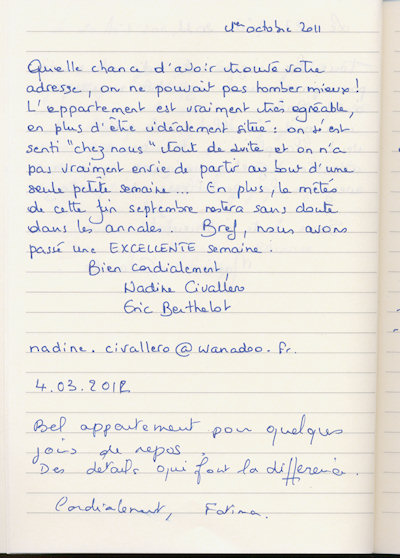 1er octobre 2011
Quelle chance d'avoir trouvé votre
adresse, on ne pouvait pas tomber mieux !
L'appartement est vraiment très agréable,
en plus d'être idéalement situé : on s'est
senti "chez nous" tout de suite et on n'a
pas vraiment envie de partir au bout d'une
seule petite semaine... En plus, la météo
de cette fin septembre restera sans doute
dans les annales. Bref, nous avons
passé une EXCELLENTE semaine.
Bien cordialement,
Nadine Civallero
Eric Berthelot
nadine.civallero@wanadoo.fr.
4.03.2012
Bel appartement pour quelques
jours de repos.
Des details qui font la difference.
Cordialement, Fatima.